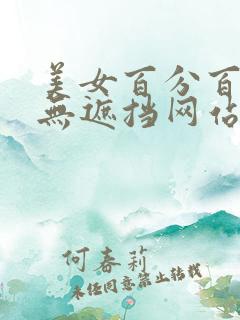 美女百分百
無遮挡网站
何春莉
未经同意禁止转载